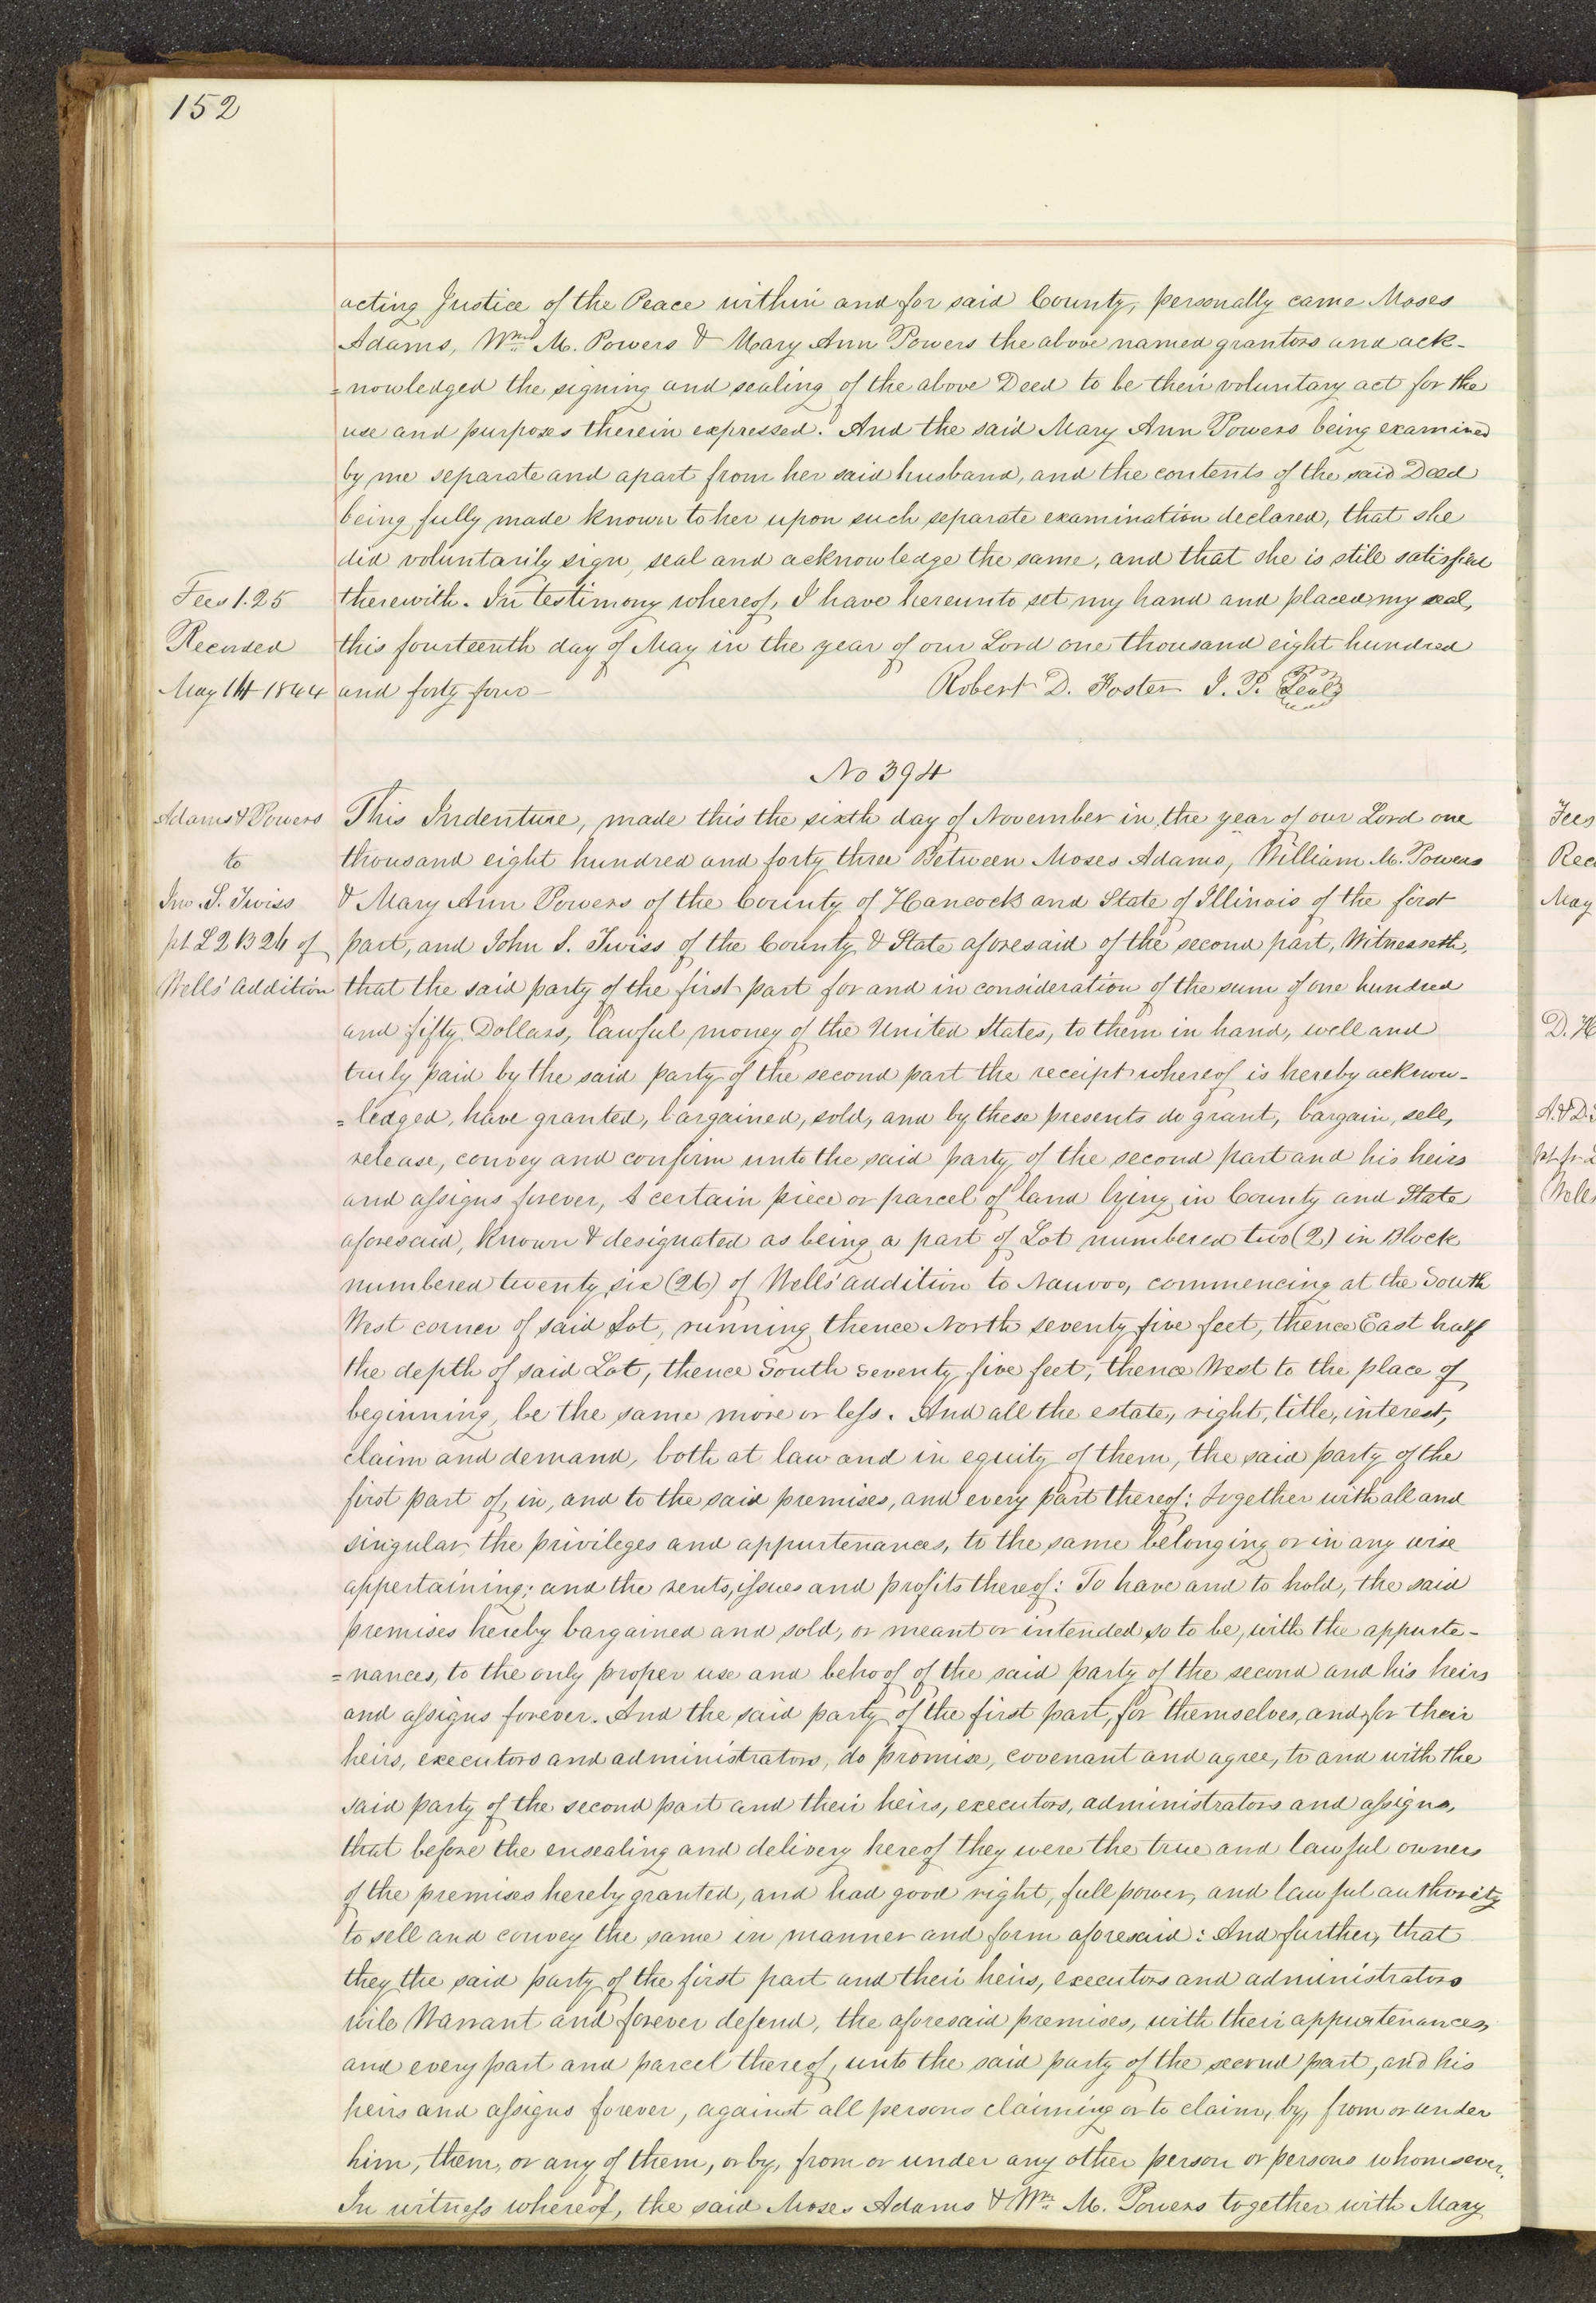 152
acting Justice of the Peace within and for said County, personally came Moses
Adams, Wm. M. Powers & Mary Ann Powers the above named grantors and ack-
=nowledged the signing and sealing of the above Deed to be their voluntary act for the
use and purposes therein expressed. And the said Mary Ann Powers being examined
by me separate and apart from her said husband, and the contents of the said Deed
being fully made known to her upon such separate examination declared, that she
did voluntarily sign, seal and acknowledge the same, and that she is still satisfied
Fees 1.25
therewith. In testimony whereof, I have hereunto set my hand and placed my seal,
Recorded
this fourteenth day of May in the year of our Lord one thousand eight hundred
May 14 1844
and forty four —
Robert D. Foster J. P. Seal
No 394
Adams & Powers
to
Jno. S. Twiss
pt L 2 B 26 of
Wells' addition
This Indenture, made this the sixth day of November in the year of our Lord one
thousand eight hundred and forty three Between Moses Adams, William M. Powers
& Mary Ann Powers of the County of Hancock and State of Illinois of the first
part, and John S. Twiss of the County & State aforesaid of the second part, Witnesseth,
that the said party of the first part for and in consideration of the sum of one hundred
and fifty Dollars, lawful money of the United States, to them in hand, well and
truly paid by the said party of the second part the receipt whereof is hereby acknow-
=ledged, have granted, bargained, sold, and by these presents do grant, bargain, sell,
release, convey and confirm unto the said party of the second part and his heirs
and assigns forever, A certain piece or parcel of land lying in County and State
aforesaid, known & designated as being a part of Lot numbered two (2) in Block
numbered twenty six (26) of Wells' addition to Nauvoo, commencing at the South
West corner of said Lot, running thence North seventy five feet, thence East half
the depth of said Lot, thence South seventy five feet, thence West to the place of
beginning, be the same more or less. And all the estate, right, title, interest,
claim and demand, both at law and in equity of them, the said party of the
first part of, in, and to the said premises, and every part thereof: together with all and
singular, the privileges and appurtenances, to the same belonging or in any wise
appertaining; and the rents, issues and profits thereof: To have and to hold, the said
premises hereby bargained and sold, or meant or intended so to be, with the appurte-
=nances, to the only proper use and behoof of the said party of the second and his heirs
and assigns forever. And the said party of the first part, for themselves, and for their
heirs, executors and administrators, do promise, covenant and agree, to and with the
said party of the second part and their heirs, executors, administrators and assigns,
that before the ensealing and delivery hereof they were the true and lawful owners
of the premises hereby granted, and had good right, full power, and lawful authority
to sell and convey the same in manner and form aforesaid: And further, that
they the said party of the first part and their heirs, executors and administrators
will Warrant and forever defend, the aforesaid premises, with their appurtenances,
and every part and parcel thereof, unto the said party of the second part, and his
heirs and assigns forever, against all persons claiming or to claim, by, from or under
him, them, or any of them, or by, from or under any other person or persons whomsoever.
In witness whereof, the said Moses Adams & Wm. M. Powers together with Mary
Fees
Rec
May
D. H